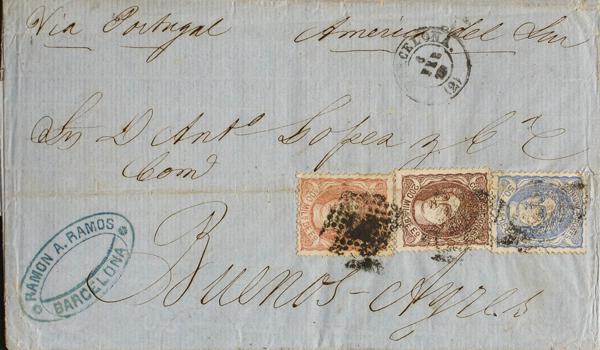 Via Portugal America del Sur
CELONA.
6
FEB
(2)
Srs D Anto Lopez y Ca
Com
Buenos-Ayres
RAMON A. RAMOS
BARCELONA